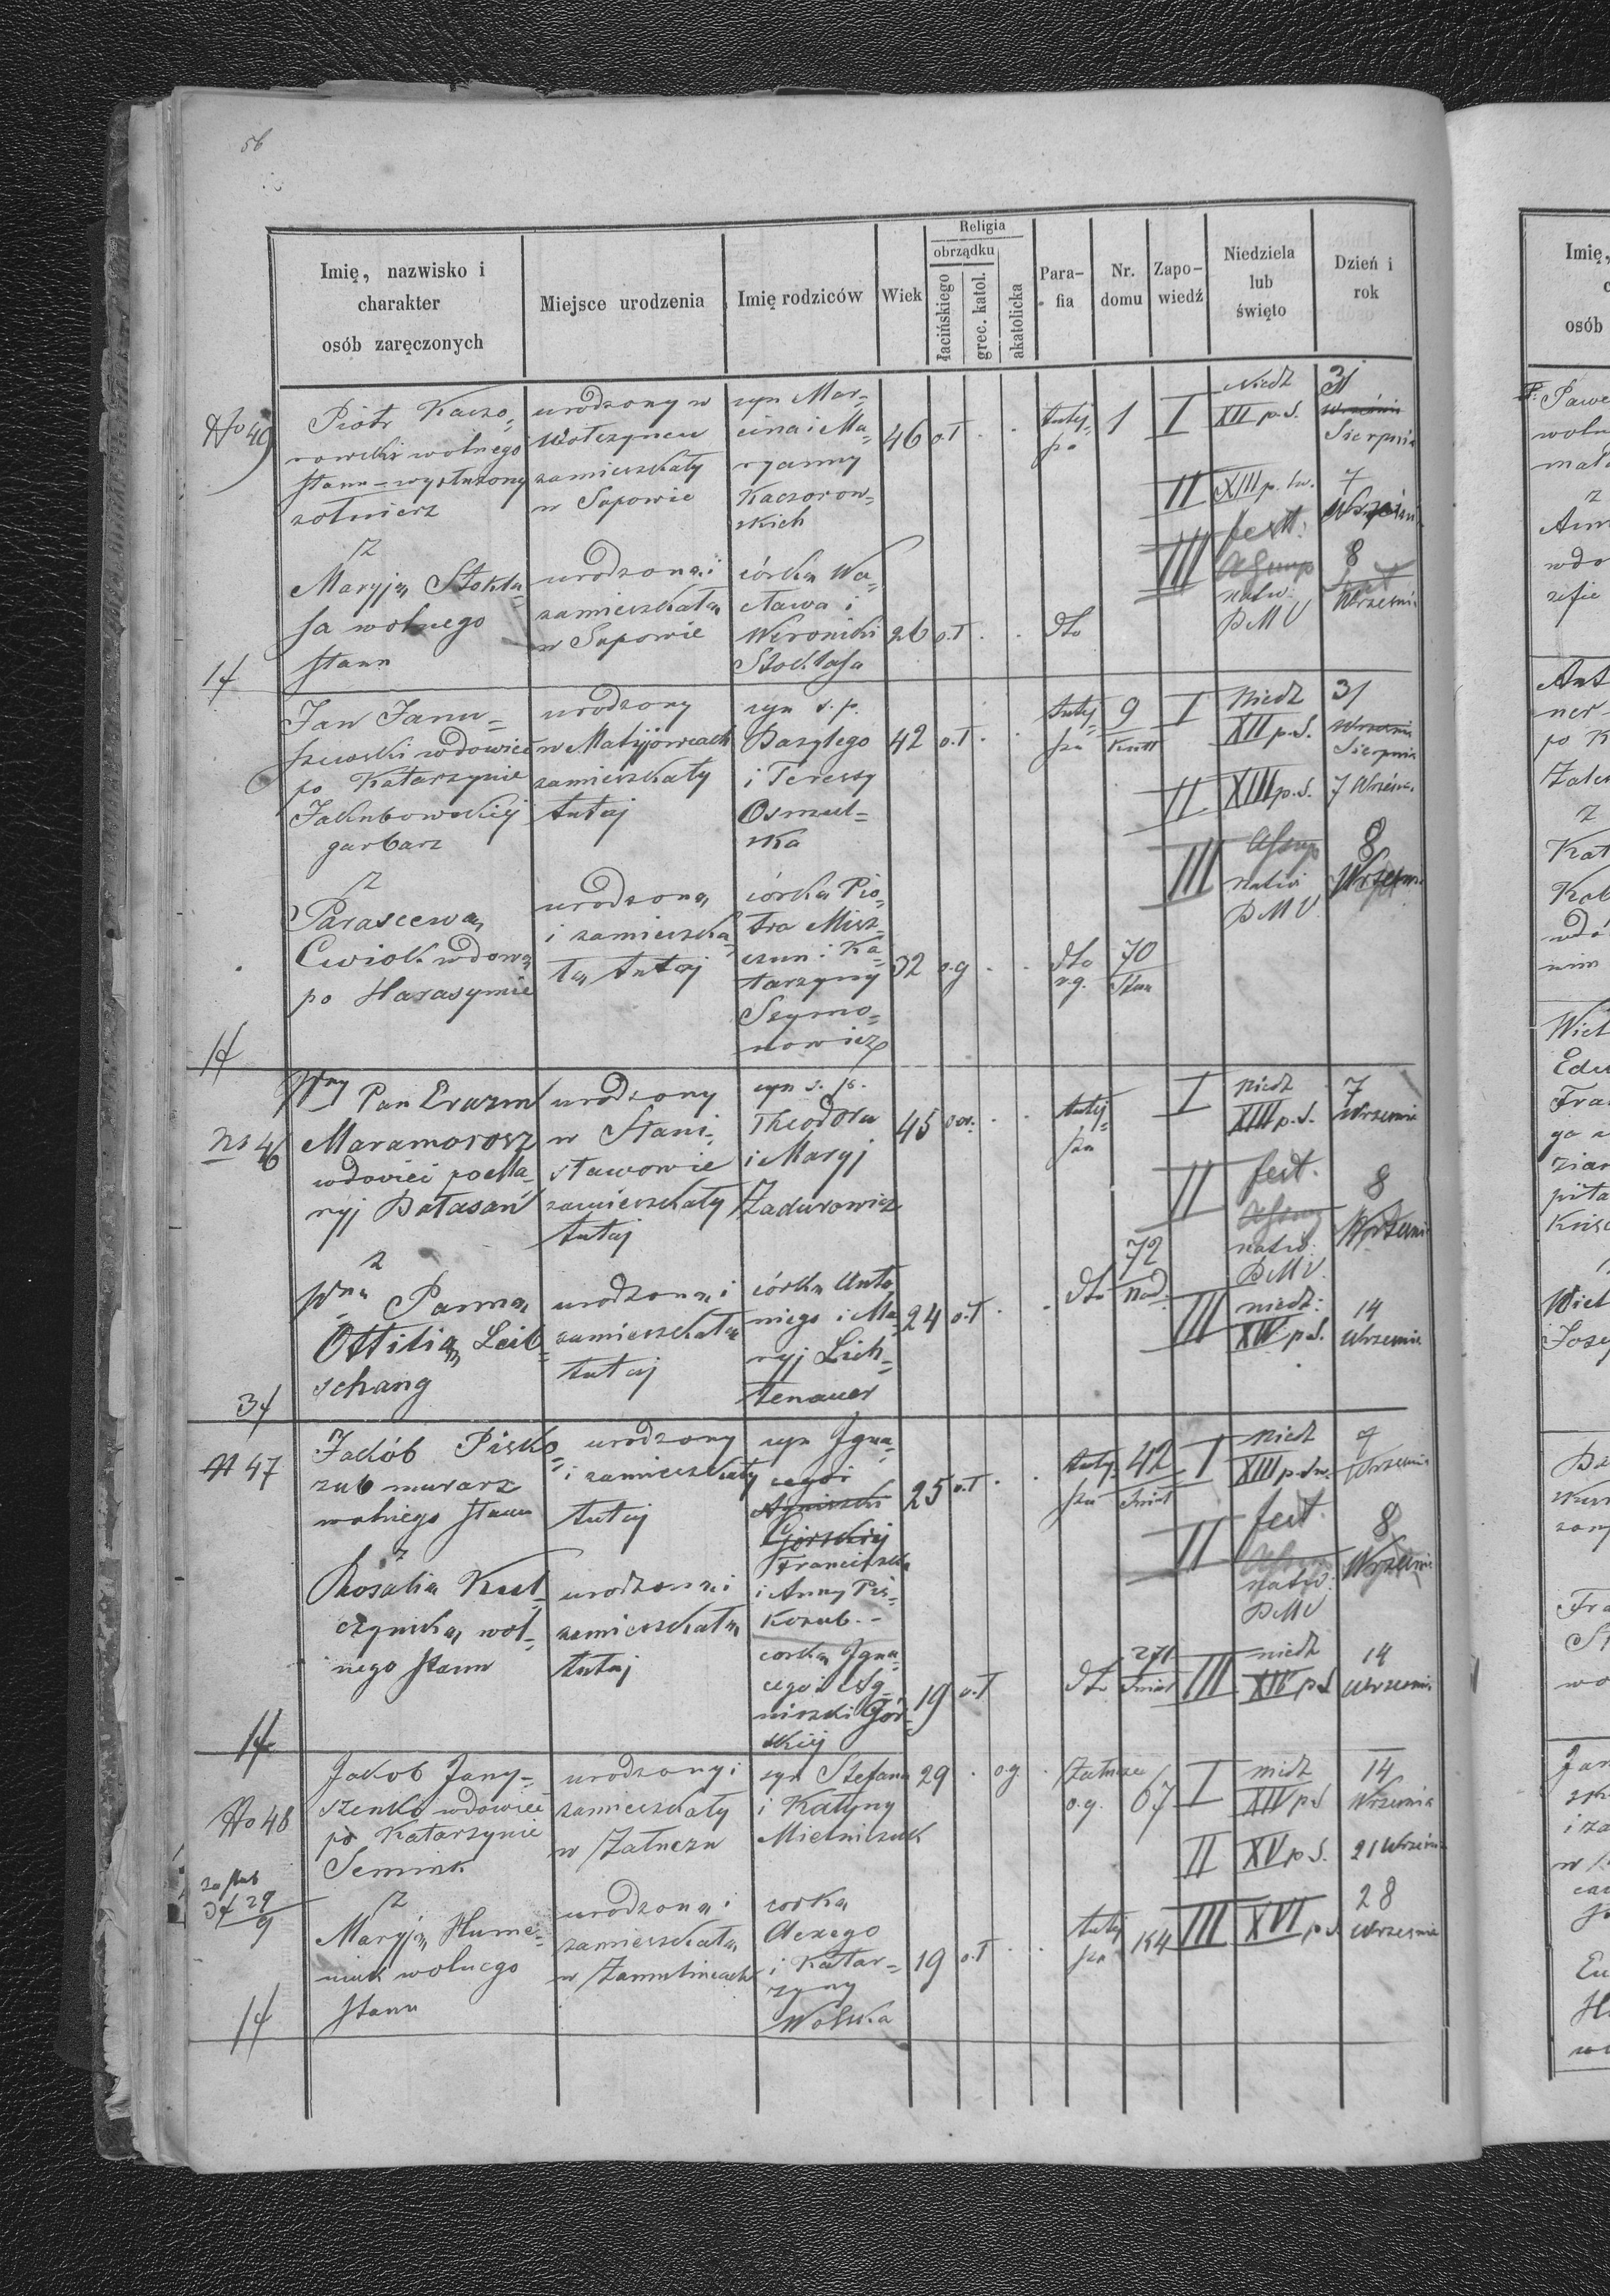 56
Imię, nazwisko i charakter osób zaręczonych
Miejsce urodzenia
Imię rodziców
Wiek
Religia
obrządku
łacińskiego
grec. katol.
akatolicka
Para-
fia
Nr.
domu
Zapo-
wiedź
Niedziela
lub
święto
Dzień i
rok
Piotr Kaczo-
rowski wolnego
stanu - wysłużony
żołnierz
urodzony w
zamieszkały
w Sopowie
syn Mar-
cina i Ma-
ryanny
Kaczorow-
skich
46 o.ł
tutej-
sza
1
I
Niedz
XII p. S.
31
Września
Sierpnia
II
XIII p. św.
7
III
fest.
nativ.
BMV
8
Września
z
Maryja Stokła-
sa wolnego
stanu
urodzona i
zamieszkała
w Sopowie
córka Wa-
cława i
Weroniki
Stokłasa
26 o.ł
dto
Jan Janu-
szewski wdowiec
po Katarzynie
Jakubowskiej
garbarz
urodzony
w Matyjowcach
zamieszkały
tutaj
syn s. p.
Bazylego
i Teressy
Osmul-
ska
42 o.ł
tutej-
sza
9
I
Niedz
XII p. S.
31
Września
Sierpnia
II
XIII p. S.
7 Wrześn.
III
Assump
nativi
BMV
8
z
Parascewa
Cwiok wdowa
po Harasymie
urodzona
i zamieszka-
ła tutaj
córka Pio-
tra Misz-
czun i Ka-
tarzyny
Szymo-
nowicz
32 o.g
dto
r.g.
70
Wny Pan Erazm
Maramorosz
wdowiec po Ma-
ryj Bałasan
No 46
urodzony
w Stani-
sławowie
zamieszkały
tutaj
syn s. p.
Theodora
i Maryj
Zadurowicz
45 o or.
tutej-
sza
I
niedz
XIII p. S.
7
Września
II
fest.
nativ.
BMV.
8
Września
z
Wna Panna
Ottilia Leib-
schang
urodzona i
zamieszkała
tutaj
córka Anto-
niego i Ma-
ryj Lich-
tenauer
24 o.ł
dto
72
Nad.
III
niedz:
XIV p. S.
14
Września
N 47
Jakób Pisko-
zub murarz
wolnego stanu
urodzony
i zamieszkały
tutaj
syn Igna-
cego i
Agnieszki
Górskiej
Franciszka
i Anny Pis-
kozub.-
25 o.ł
tutej-
sza
42
I
niedz
XIII p. św.
7
Września
II
fest.
nativ:
BMV
8
Września
z
Rosalia Kul-
czycka wol-
nego stanu
urodzona i
zamieszkała
tutaj
córka Igna-
cego i Ag-
nieszki Gór-
skiej
19 o.ł
dto
271
III
niedz
XIV p S
14
Września
No 48
Jakob Jany-
szenko wdowiec
po Katarzynie
urodzony i
zamieszkały
w Załuczu
syn Stefana
i Katyny
Mielniczuk
29
o.g
Załucze
o.g.
67
I
niedz
XIV p S
14
Września
II
XV p. S.
21 Wrześni
III
XVI p. S
28
Września
z
Maryja Hume-
niuk wolnego
stanu
urodzona i
zamieszkała
w Zamulincach
corka
i Katar-
zyny
Wolska
19 o.ł
tutej
sza